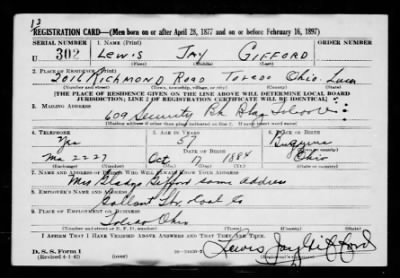 13
REGISTRATION CARD—(Men born on or after April 28, 1877 and on or before February 16, 1897)
SERIAL NUMBER 1. NAME (Print) ORDER NUMBER
U 302 LEWIS JAY GIFFORD
(First) (Middle) (Last)
2. PLACE OF RESIDENCE (Print)
2016 RICHMOND ROAD TOLEDO OHIO
[THE PLACE OF RESIDENCE GIVEN ON THE LINE ABOVE WILL DETERMINE LOCAL BOARD
JURISDICTION; LINE 2 OF REGISTRATION CERTIFICATE WILL BE IDENTICAL]
3. MAILING ADDRESS
609 Security Bk Bldg Toledo O
[Mailing address if other than place indicated on line 2. If same insert word same]
4. TELEPHONE 5. AGE IN YEARS 6. PLACE OF BIRTH
Yes 57
DATE OF BIRTH
Ma 2227 Oct 17 1884 Ohio
7. NAME AND ADDRESS OF PERSON WHO WILL ALWAYS KNOW YOUR ADDRESS
Mrs Gladys Gifford same address
8. EMPLOYER'S NAME AND ADDRESS
Coal Co
9. PLACE OF EMPLOYMENT OR BUSINESS
Toledo Ohio
I AFFIRM THAT I HAVE VERIFIED ABOVE ANSWERS AND THAT THEY ARE TRUE.
D. S. S. Form 1
(Revised 4-1-42)
Lewis Jay Gifford